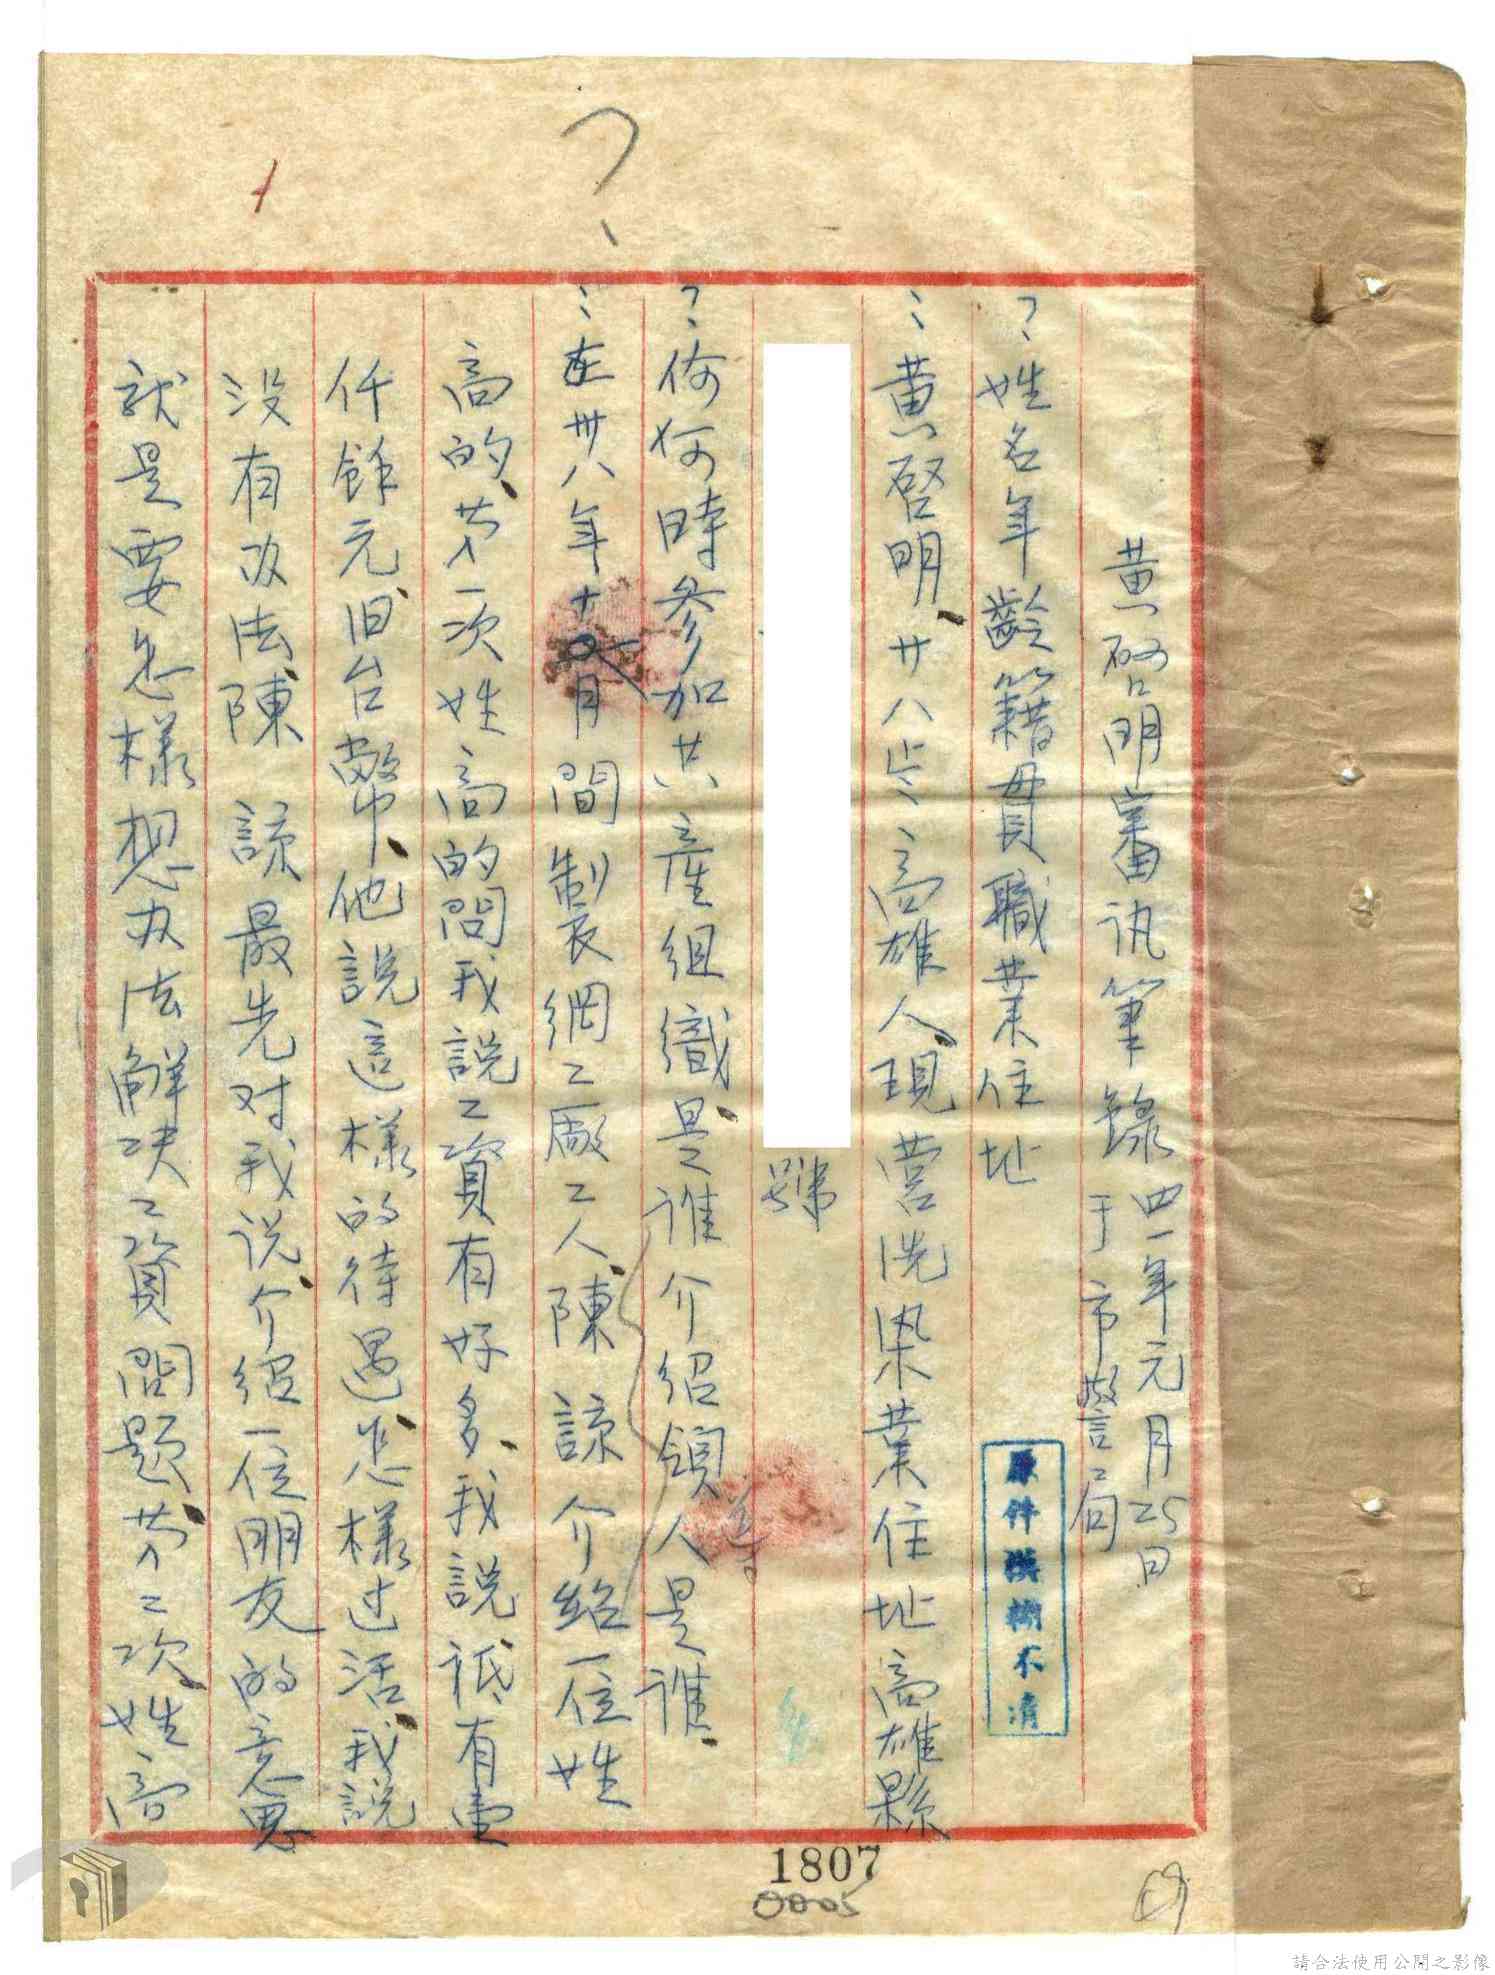 黄啓明審訊筆錄 四一年元月25日
于市警局
？姓名年齡籍貫職業住址
：黄啓明、廿八岁高雄人、現营洗染業住址高雄縣
號
？你何時参加共産組織、是谁介紹領導人是谁、
：在卅八年十月間製網工廠工人、陳 諒介紹一位姓
高的、苐一次姓高的問我説工資有好多、我説祗有壹
仟餘元、旧台幣、他説這樣的待遇、怎樣过活、我説
没有办法、陳 諒最先对我说、介紹一位朋友的意思
就是要怎樣想办法解决工資問題、苐二次、姓高
原件模糊不清
1807
0005
請合法使用公開之影像